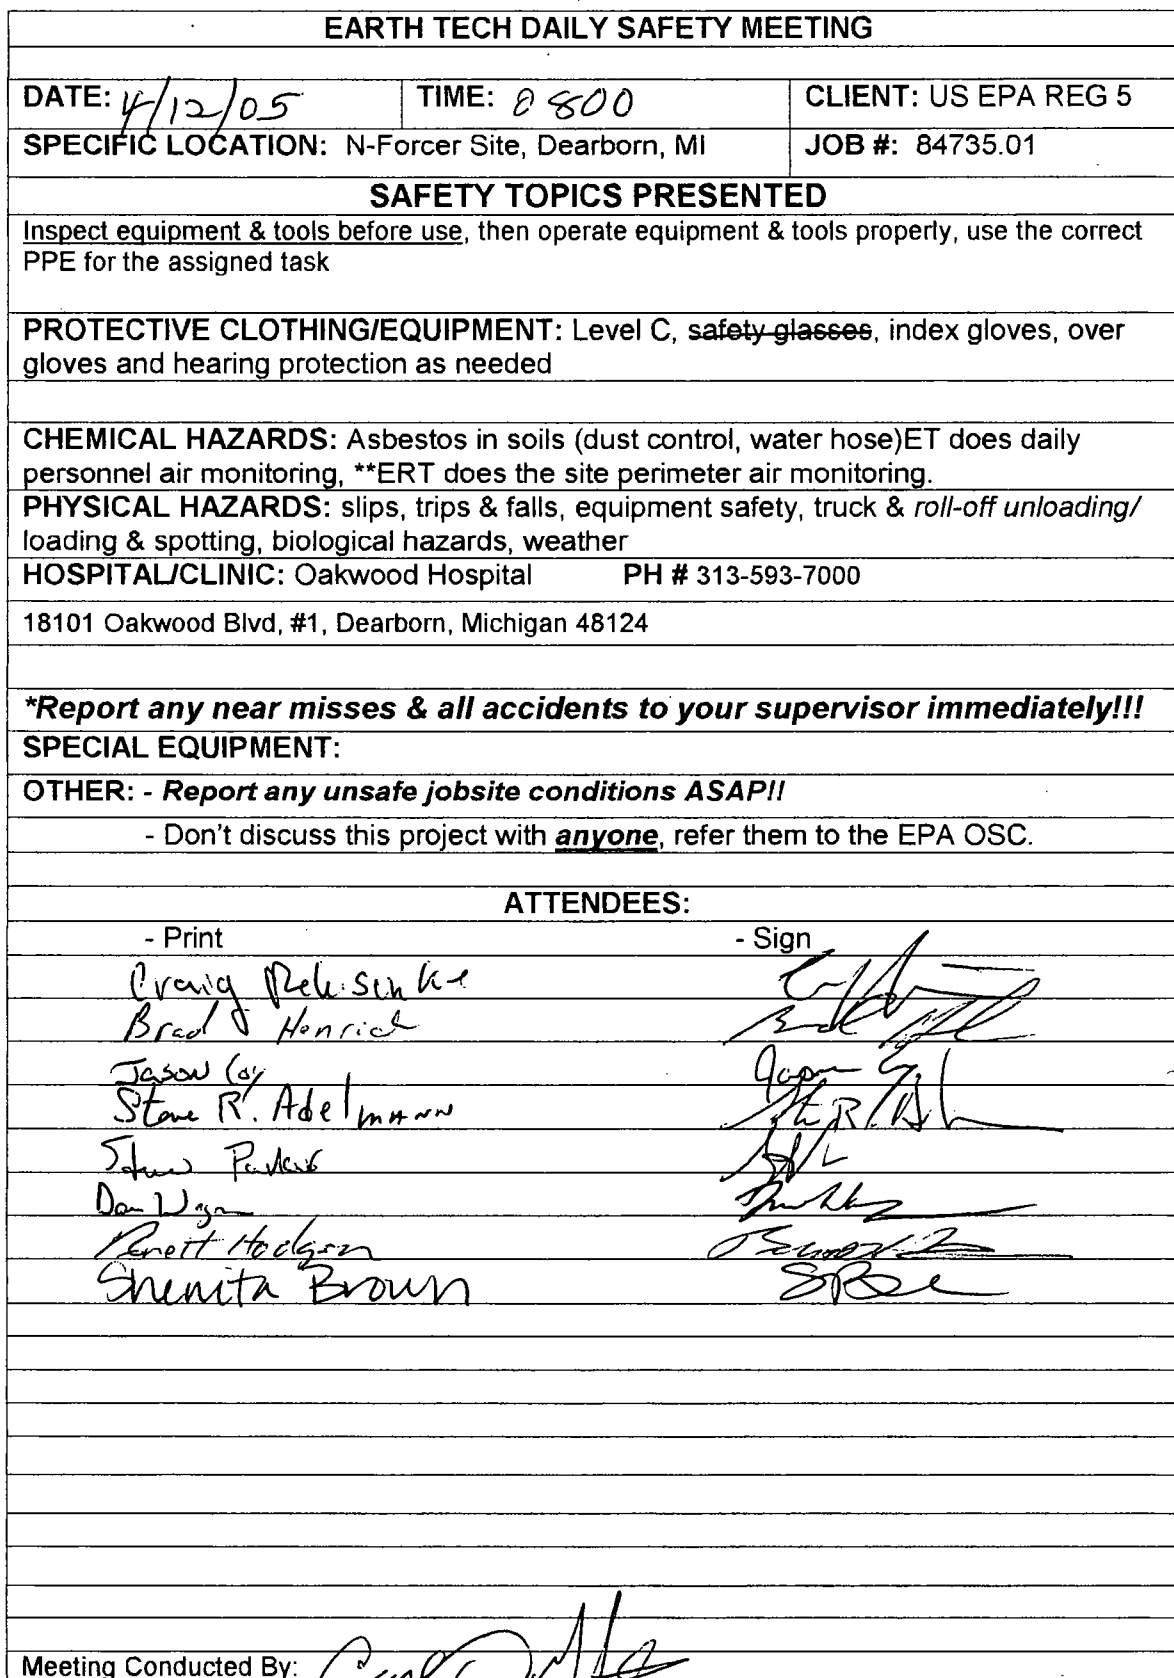 EARTH TECH DAILY SAFETY MEETING
DATE: 4/12/05 TIME: 0800 CLIENT: US EPA REG 5
SPECIFIC LOCATION: N-Forcer Site, Dearborn, MI JOB #: 84735.01
SAFETY TOPICS PRESENTED
Inspect equipment & tools before use, then operate equipment & tools properly, use the correct
PPE for the assigned task
PROTECTIVE CLOTHING/EQUIPMENT: Level C, safety glasses, index gloves, over
gloves and hearing protection as needed
CHEMICAL HAZARDS: Asbestos in soils (dust control, water hose)ET does daily
personnel air monitoring, **ERT does the site perimeter air monitoring.
PHYSICAL HAZARDS: slips, trips & falls, equipment safety, truck & roll-off unloading/
loading & spotting, biological hazards, weather
HOSPITAL/CLINIC: Oakwood Hospital PH # 313-593-7000
18101 Oakwood Blvd, #1, Dearborn, Michigan 48124
*Report any near misses & all accidents to your supervisor immediately!!!
SPECIAL EQUIPMENT:
OTHER: - Report any unsafe jobsite conditions ASAP!!
- Don't discuss this project with anyone, refer them to the EPA OSC.
ATTENDEES:
- Print - Sign
Craig
Brad J Henrich
Jason Coy
Steve R. Adelmann
Dan
Hodgson
Shenita Brown
Meeting Conducted By: